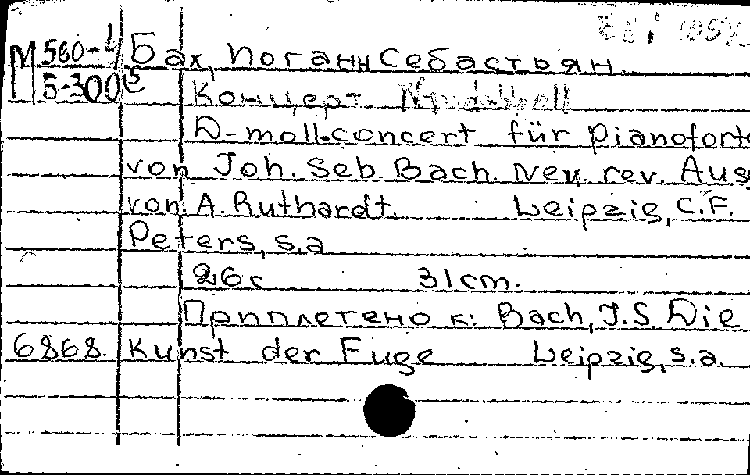 М 560-4 Бах, Иоганн Себастьян
Б-300
Концерт
D-moll-concert für Pianoforte
von Joh. Seb Bach. Neu rev. Aus
von A. Ruthardt. Leipzig, C.F.
Peters, s.a
26 с 31 cm.
Приплетено к: Bach, J.S. Die
6868 Kunst der Fuge Leipzig, s.a.